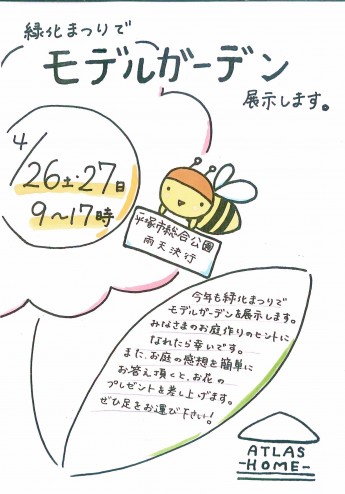 緑化まつりで
モデルガーデン
展示します。
4/26土・27日
9〜17時
平塚市総合公園
雨天決行
今年も緑化まつりで
モデルガーデンを展示します。
みなさまのお庭作りのヒントに
なれたら幸いです。
また、お庭の感想を簡単に
お答え頂くと、お花の
プレゼントを差し上げます。
ぜひ足をお運び下さい!
ATLAS
-HOME-